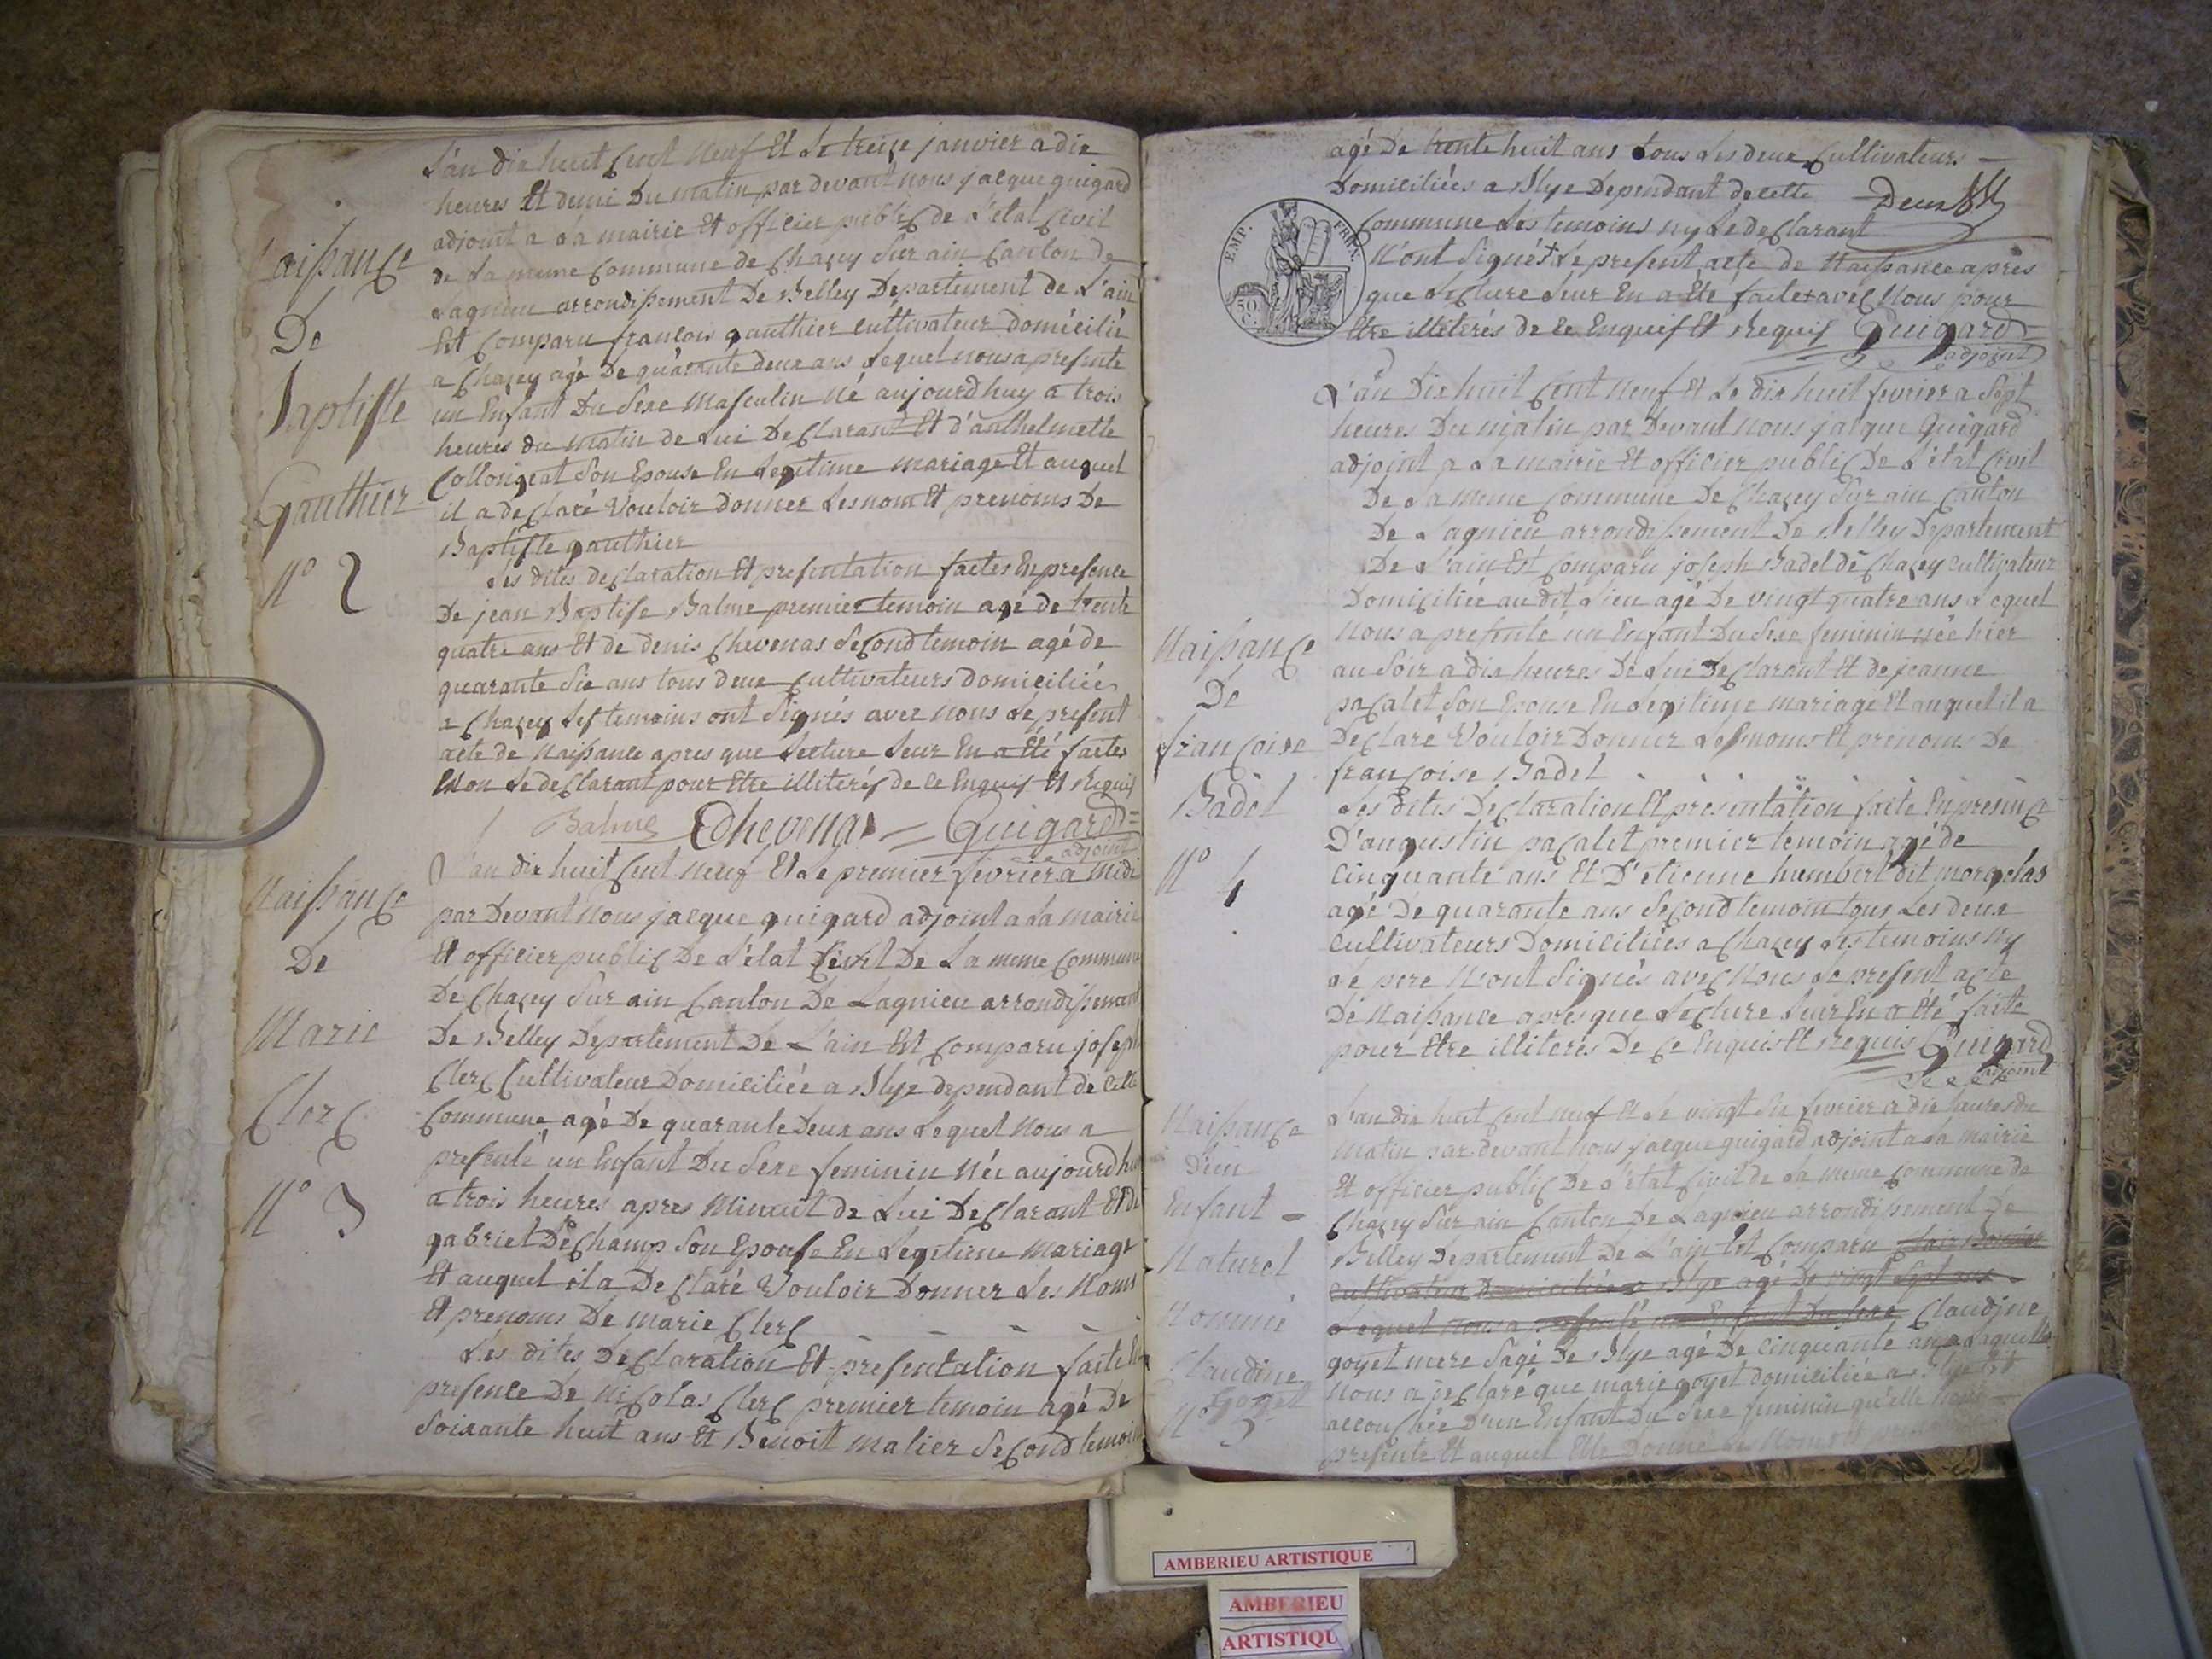 L'an dix huit Cent Neuf Et Le treize janvier a dix
heures Et demi Du matin par devant nous jacque guigard
adjoint a La mairie Et officier public de L'etat Civil
de La meme Commune de Chazey Sur ain Canton de
Lagnieu arrondissement De Belley Departement de L'ain
Est Comparu francois gauthier cultivateur domicilié
a Chazey agé De quarante deux ans Lequel nous a presenté
un Enfant Du Sexe Masculin Né aujourd huy a trois
heures du matin de Lui Declarant Et d'anthelmette
Collongeat Son Epouse En Legitime mariage Et auquel
il a declaré Vouloir donner Les nom Et prenoms De
Baptiste gauthier
Naissance
De
Baptiste
Gauthier
N° 2
Les dites declaration Et presentation faites En presence
De jean Baptise Balme premier temoin agé de trente
quatre ans Et de denis Chevenas Second temoin agé de
quarante Six ans tous deux Cultivateurs domiciliés
a Chazey Les temoins ont Signés avec nous Le present
acte de Naissance apres que Lecture Leur En a Eté faites
Et Non Le declarant pour Etre illiterés de ce Enquis Et Requis
Balme Chevenas Guigard
adjoint
L'an dix huit Cent Neuf Et Le premier fevrier a Midi
par Devant Nous jacque guigard adjoint a La Mairie
Et officier public De L'etat Civil De La meme Commune
De Chazey Sur ain Canton De Lagnieu arrondissement
De Belley Departement De L'ain Est Comparu joseph
Clerc Cultivateur Domiciliée a Blye dependant de cette
Commune agé De quarante Deux ans Lequel Nous a
presenté un Enfant Du Sexe feminin Née aujourd huy
a trois heures apres Minuit de Lui Declarant Et De
gabriel DeChamp Son Epouse En Legitime Mariage
Et auquel il a Declaré Vouloir Donner Les Noms
Et prenoms De Marie Clerc
Naissance
De
Marie
Clerc
N° 3
Les dites Declaration Et presentation faite En
presence De Nicolas Clerc premier temoin agé De
Soixante huit ans Et Benoit Malier Second temoin
agé De trente huit ans tous Les deux Cultivateurs
Domiciliées a Blye Dependant de cette
Commune Les temoins ny Le declarant
N'ont Signé Le present acte de Naissance apres
que Lecture Leur En a Eté faite avec Nous pour
Etre illiterés de ce Enquis Et Requis Guigard
adjoint
EMP. FRAN.
50 C.
L'an Dix huit Cent Neuf Et Le dix huit fevrier a Sept
heures Du matin par Devant Nous jacque Guigard
adjoint a La mairie Et officier public De L'etat Civil
De La meme Commune De Chazey Sur ain Canton
De Lagnieu arrondissement De Belley Departement
De L'ain Est Comparu joseph Badel de Chazey cultivateur
Domiciliée au dit Lieu agé De vingt quatre ans Lequel
Nous a presenté un Enfant Du Sexe feminin née hier
au Soir a dix heures De Lui Declarant Et de jeanne
pacalet Son Epouse En Legitime mariage Et auquel il a
Declaré Vouloir Donner Les noms Et prenoms De
françoise Badel
Naissance
De
françoise
Badel
N° 4
Les dites Declaration Et presentation faite En presence
D'augustin pacalet premier temoin agé de
Cinquante ans Et D'etienne humbert dit morgelas
agé De quarante ans Second temoin tous Les deux
Cultivateurs Domiciliées a Chazey Les temoins Ny
Le pere N'ont Signés avec Nous Le present acte
De Naissance apres que Lecture Leur En a Eté faite
pour Etre illiterés De Ce Enquis Et Requis Guigard
adjoint
L'an dix huit Cent neuf Et Le vingt Six fevrier a dix heures du
matin par devant nous jacque guigard adjoint a La mairie
Et officier public De L'etat Civil de La meme Commune de
Chazey Sur ain Canton De Lagnieu arrondissement De
Belley Departement De L'ain Est Comparu
Cultivateur Domiciliée a Blye agé De vingt Sept ans
Lequel nous a presenté un Enfant Du Sexe Claudine
goyet mere Sage De Blye agé De Cinquante ans Laquelle
Nous a declaré que marie goyet domiciliée a Blye
accouchée D'un Enfant Du Sexe feminin qu'elle nous
presente Et auquel Elle Donne Les Noms
Naissance
D'un
Enfant
Naturel
Nommé
Claudine
Goyet
N° 5
AMBERIEU ARTISTIQUE
AMBERIEU
ARTISTIQU